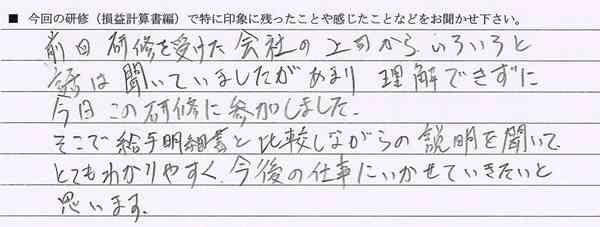 ■ 今回の研修（損益計算書編）で特に印象に残ったことや感じたことなどをお聞かせ下さい。
前回 研修を受けた 会社の 上司から いろいろと
話は 聞いていましたが あまり 理解できずに
今日 この研修に 参加しました.
そこで 給与明細書と 比較しながらの 説明を聞いて
とても わかりやすく、今後の仕事に いかせていきたいと
思います.